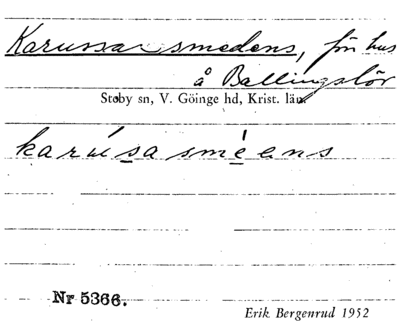 Karussa smedens, förr hus
å Ballingslöv
Stoby sn, V. Göinge hd, Krist. län
karúsa smèens
Nr 5366.
Erik Bergenrud 1952